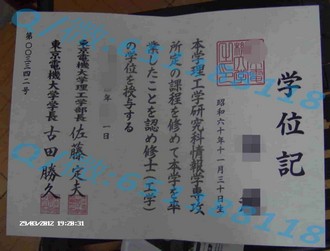 学位記
昭和六十年十一月三十日生
本学理工学研究科情報学専攻
所定の課程を修めて本学を卒
業したことを認め修士(工学)
の学位を授与する
年 月一日
東京電機大学理工学部長 佐藤定夫
東京電機大学学長 古田勝久
第〇〇三三四二号
29/03/2012 19:28:31